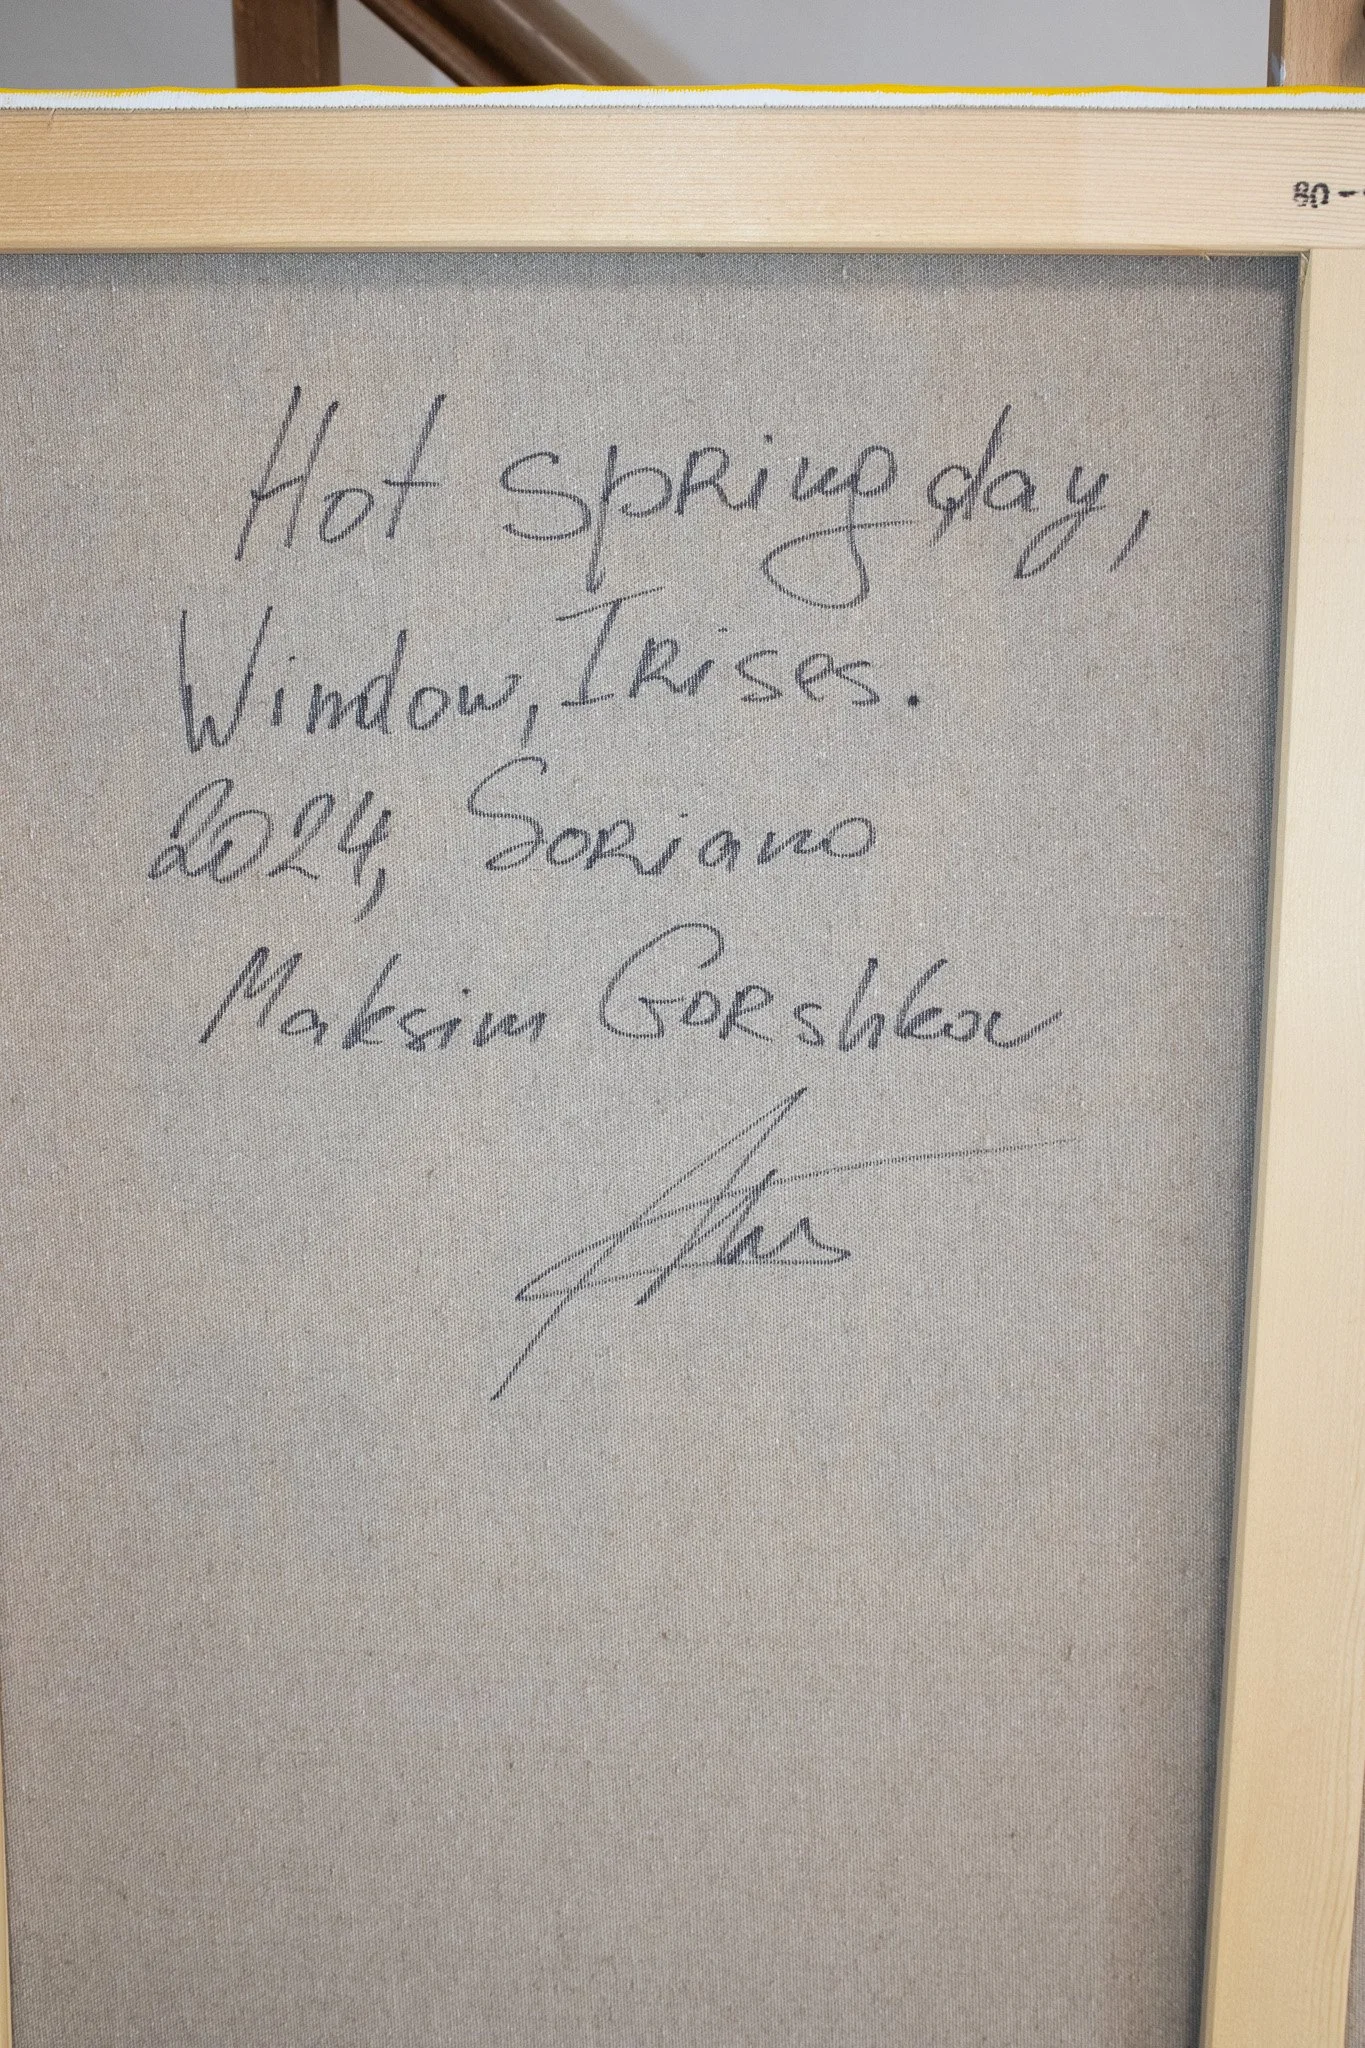 80-
Hot spring day,
Window, Irises.
2024, Soriano
Maksim Gorshkov